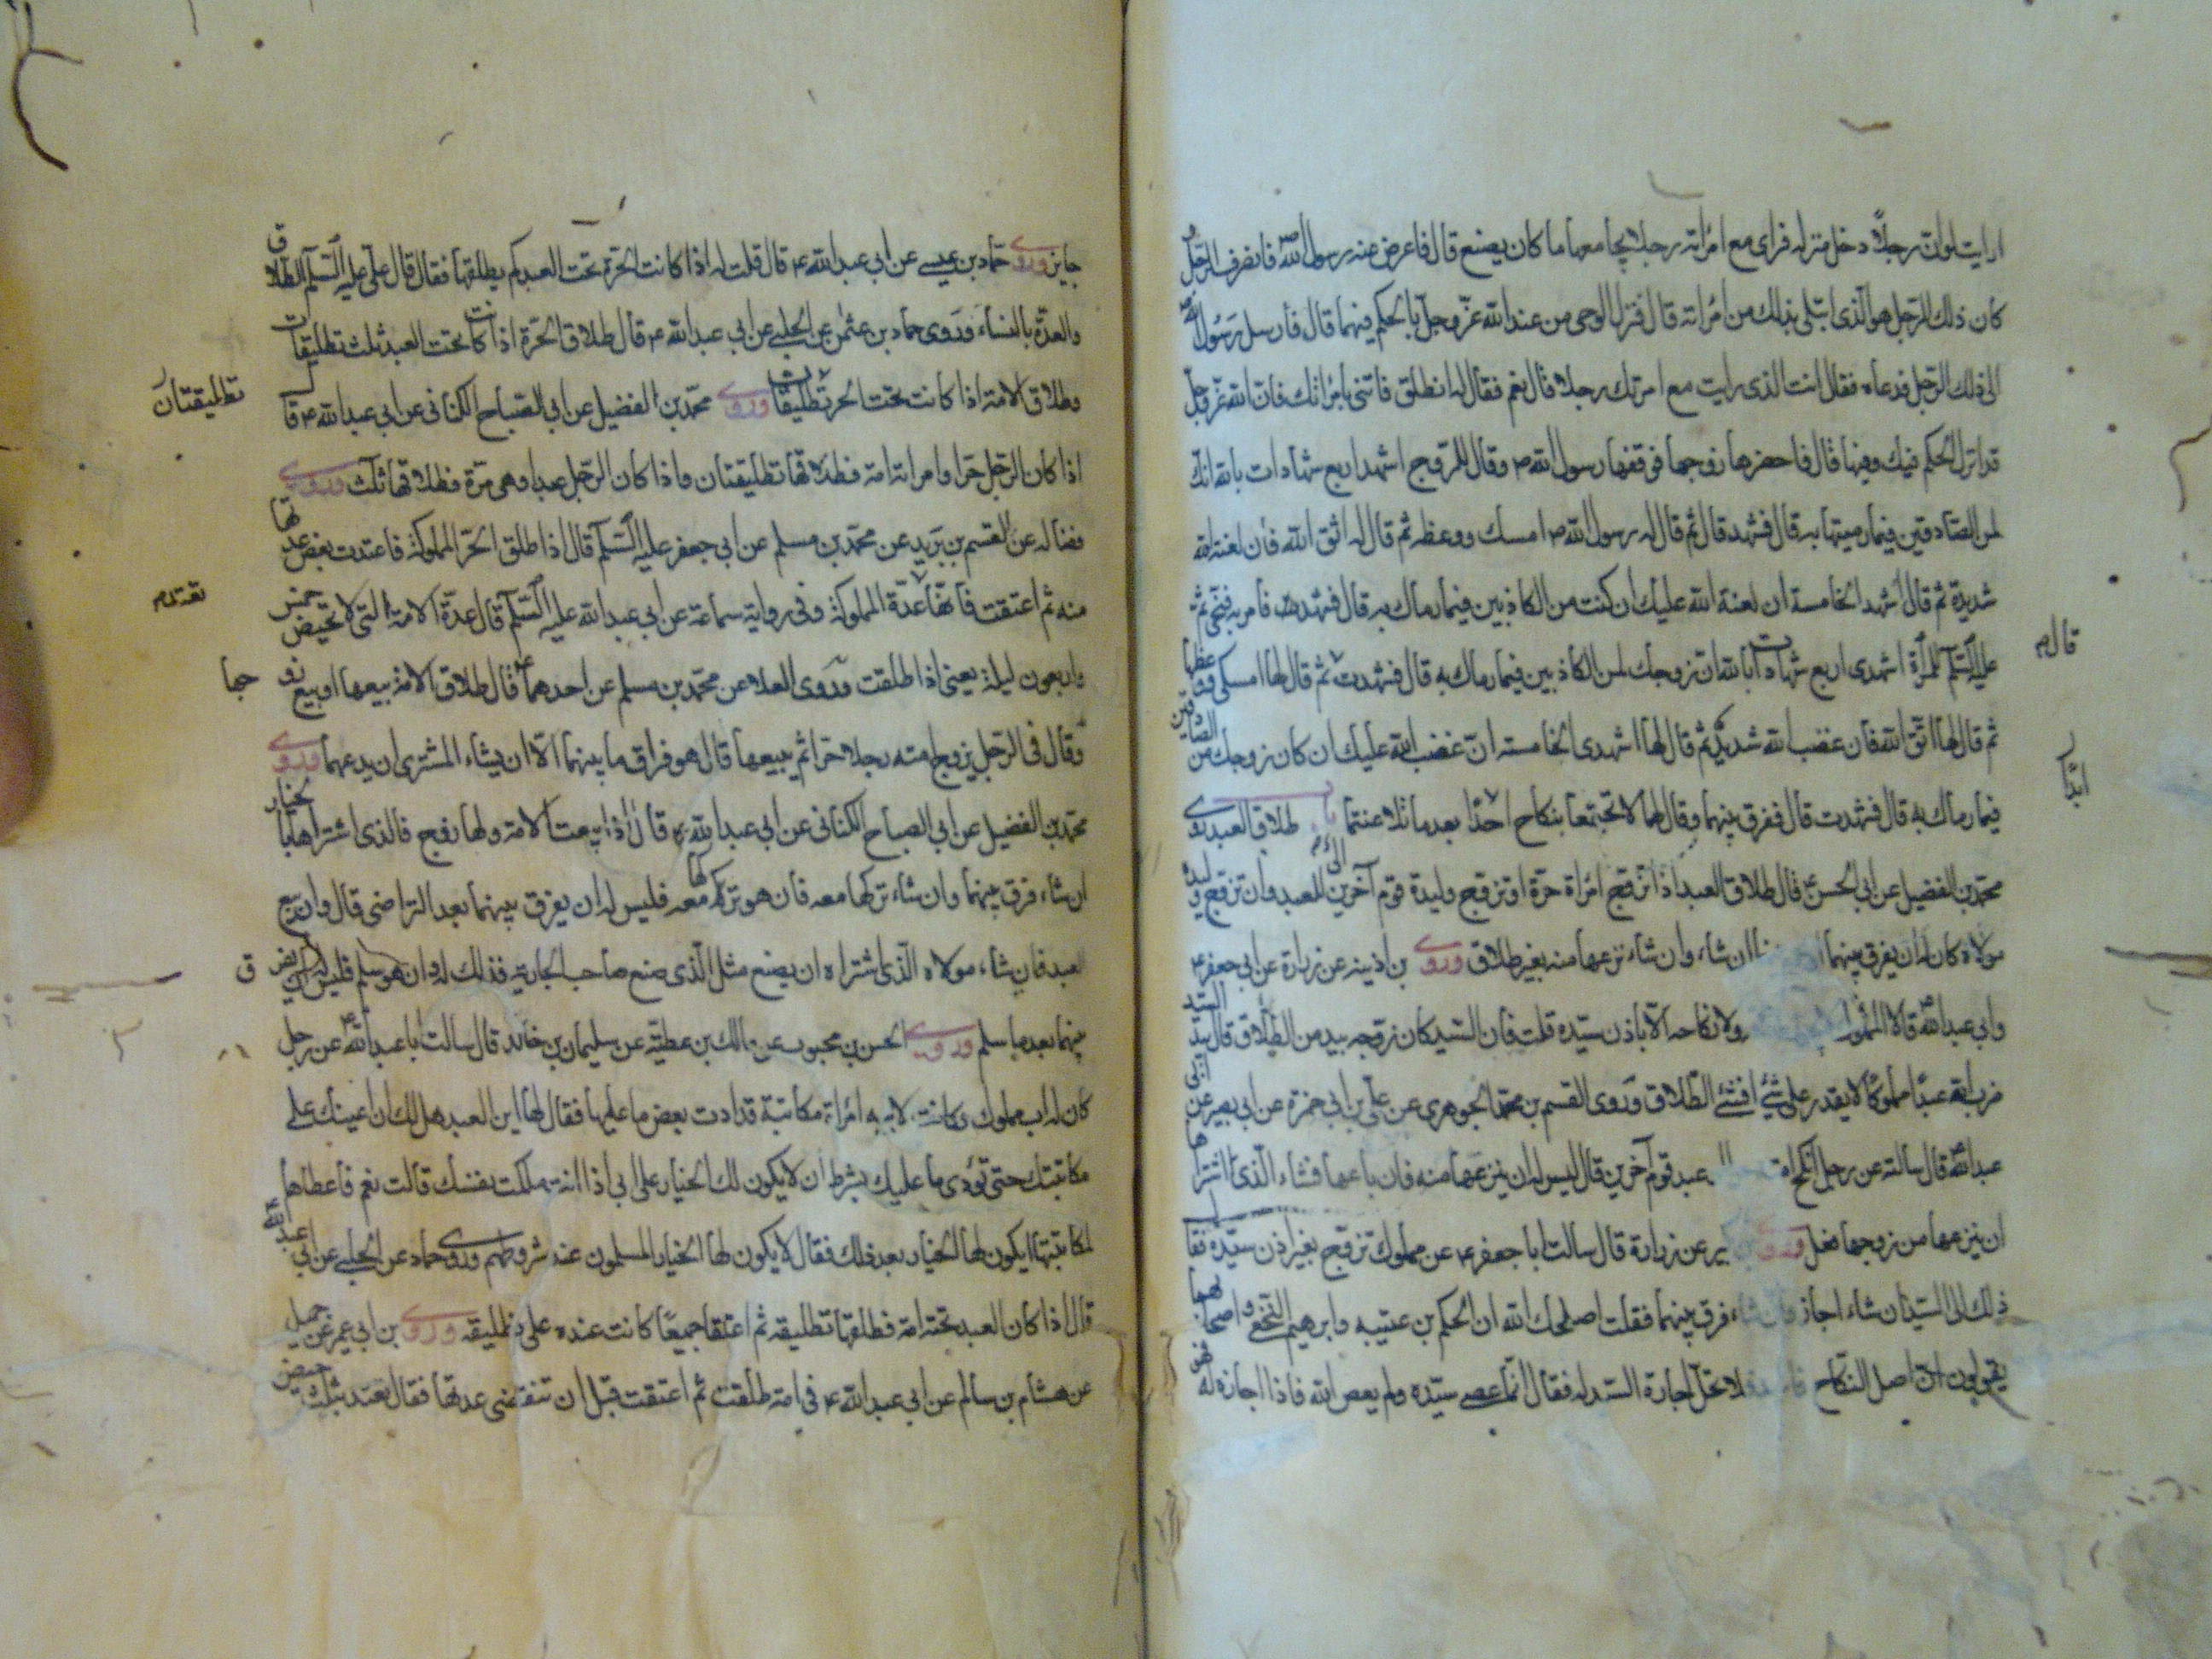 ارايت لو ان رجلاً دخل منزله فراى مع امراته رجلا يجامعها ما كان يصنع قال فاعرض عنه رسول الله ص فانصرف الرجل و
كان ذلك الرجل هو الذى ابتلى بذلك من امراته قال فنزل الوحى من عند الله عزّ وجلّ بالحكم فيهما قال فأرسل رسول الله ص
الى ذلك الرجل فدعاه فقال انت الذى رايت مع امرتك رجلا قال نعم فقال له انطلق فاتنى بامراتك فان الله عزّ وجلّ
قد انزل الحكم فيك وفيها قال فاحضرها زوجها فوقفها رسول الله ص وقال للزوج اشهد اربع شهادات بالله انك
لمن الصادقين فيما رميتها به قال فشهد قال ثم قال له رسول الله ص امسك ووعظه ثم قال له اتق الله فان لعنة الله
شديدة ثم قال اشهد الخامسة ان لعنة الله عليك ان كنت من الكاذبين فيما رماك به قال فشهد فامر به فنحى ثم
قال م
عليه السّلم للمرأة اشهدى اربع شهادات بالله ان زوجك لمن الكاذبين فيما رماك به قال فشهدت ثم قال لها امسكى فوعظها
ثم قال لها اتق الله فان غضب الله شديد ثم قال لها اشهدى الخامسة ان غضب الله عليك ان كان زوجك من الصادقين
ابدًا
فيما رماك به قال فشهدت قال ففرق بينهما وقال لهما لا تجتمعا بنكاح احدًا بعد ما تلاعنتما طلاق العبد روى
محمد بن الفضيل عن ابى الحسن ع قال طلاق العبد اذا تزوج امراة حرّة او تزوج وليدة قوم آخرين الى العبد وان تزوج وليدة
مولاه كان له ان يفرق بينهما ان شاء وان شاء نزعها منه بغير طلاق وروى بن اذينه عن زرارة عن ابى جعفر ع
وابى عبد الله ع قالا المملوك ولا نكاحه الا باذن سيّده قلت فان السّيد كان زوجه بيد من الطلاق قال بيد السّيد
ضرب الله عبدًا مملوكًا لا يقدر على شئ افشئ الطّلاق وروى القسم بن محمد الجوهرى عن على بن ابى حمزة عن ابى بصير عن ابى
عبد الله ع قال سالته عن رجل انكح امته عبد قوم آخرين قال ليس له ان ينزعها منه فان باعها فشاء الّذى اشتراها
ان ينزعها من زوجها فعل وروى ير عن زرارة قال سالت ابا جعفر ع عن مملوك تزوّج بغير اذن سيّده فقال
ذلك الى السيّد ان شاء اجاز وان شاء فرق بينهما فقلت اصلحك الله ان الحكم بن عتيبه وابرهيم النّخعى واصحابهما
يقولون ان اصل النّكاح فاسد فلا تحل اجازة السّيد له فقال انّما عصى سيّده ولم يعص الله فاذا اجازه له فهو
جايز وروى حمّاد بن عيسى عن ابى عبد الله ع قال قلت له اذا كانت الحرّة تحت العبد كم يطلقها فقال قال علىّ عليه السّلم الطلاق
والعدّة بالنساء وروى حماد بن عثمن عن الحلبى عن ابى عبد الله ع قال طلاق الحرّة اذا كانت تحت العبد ثلث تطليقات
تطليقتان
وطلاق الامة اذا كانت تحت الحر تطليقات وروى محمّد بن الفضيل عن ابى الصّباح الكنانى عن ابى عبد الله ع قال
اذا كان الرّجل حرا وامراته امة فطلاقها تطليقتان واذا كان الرّجل عبدا وهى حرّة فطلاقها ثلث وروى
فضاله عن القسم بن بريد عن محمّد بن مسلم عن ابى جعفر عليه السّلم قال اذا طلق الحرّ المملوكة فاعتدت بعض عدتها
منه ثم اعتقت فانها تعتد عدّة المملوكة وفى رواية سماعة عن ابى عبد الله عليه السّلم قال عدّة الامة التى لا تحيض خمس
واربعون ليلة يعنى اذا طلقت وروى العلا عن محمّد بن مسلم عن احدهما ع قال طلاق الامة بيعها او بيع زوجها
وقال فى الرّجل يزوج امته رجلا حرّا ثم يبيعها قال هو فراق ما بينهما الّا ان يشاء المشترى ان يدعهما وروى
محمّد بن الفضيل عن ابى الصباح الكنانى عن ابى عبد الله ع قال اذا بيعت الامة ولها زوج فالذى اشتراها بالخيار
ان شاء فرق بينهما وان شاء تركها معه فان هو تركها معه فليس له ان يفرق بينهما بعد التراضى قال وان بيع
العبد فان شاء مولاه الّذى اشتراه ان يصنع مثل الّذى صنع صاحب الجارية فذلك له وان هو سلم فليس له ان يفرق
بينهما بعد ما سلم وروى الحسن بن محبوب عن مالك بن عطيّه عن سليمان بن خالد قال سالت ابا عبد الله ع عن رجل
كان له اب مملوك وكانت لابيه امراة مكاتبة قد ادت بعض ما عليها فقال لها ابن العبد هل لك ان اعينك على
مكاتبتك حتى تؤدى ما عليك بشرط ان لا يكون لك الخيار على ابى اذا انت ملكت نفسك قالت نعم فاعطاها
لمكاتبتها ايكون لها الخيار بعد ذلك فقال لا يكون لها الخيار المسلمون عند شروطهم وروى حماد عن الحلبى عن ابى عبد الله ع
قال اذا كان العبد تحته امة فطلقها تطليقه ثم اعتقا جميعًا كانت عنده على تطليقه وروى بن ابى عمير عن جميل
عن هشام بن سالم عن ابى عبد الله ع فى امة طلقت ثم اعتقت قبل ان تنقضى عدتها فقال تعتد بثلث حيض